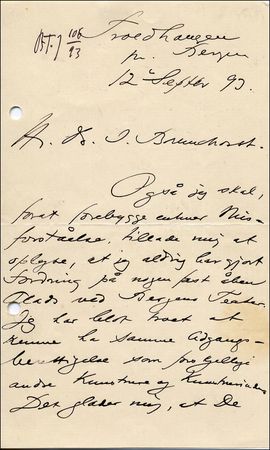 Troldhaugen
pr. Bergen
12 Septbr 93.
Hr. Dr. J. Brunchorst.
Også jeg skal,
forat forebygge enhver Mis-
forståelse, tillade mig at
oplyse, at jeg aldrig har gjort
Fordring på nogen fast åben
Plads ved Bergens Teater.
Jeg har blot troet at
kunne ha samme Adgangs-
berettigelse som
andre Kunstnere og
Det glæder mig, at De